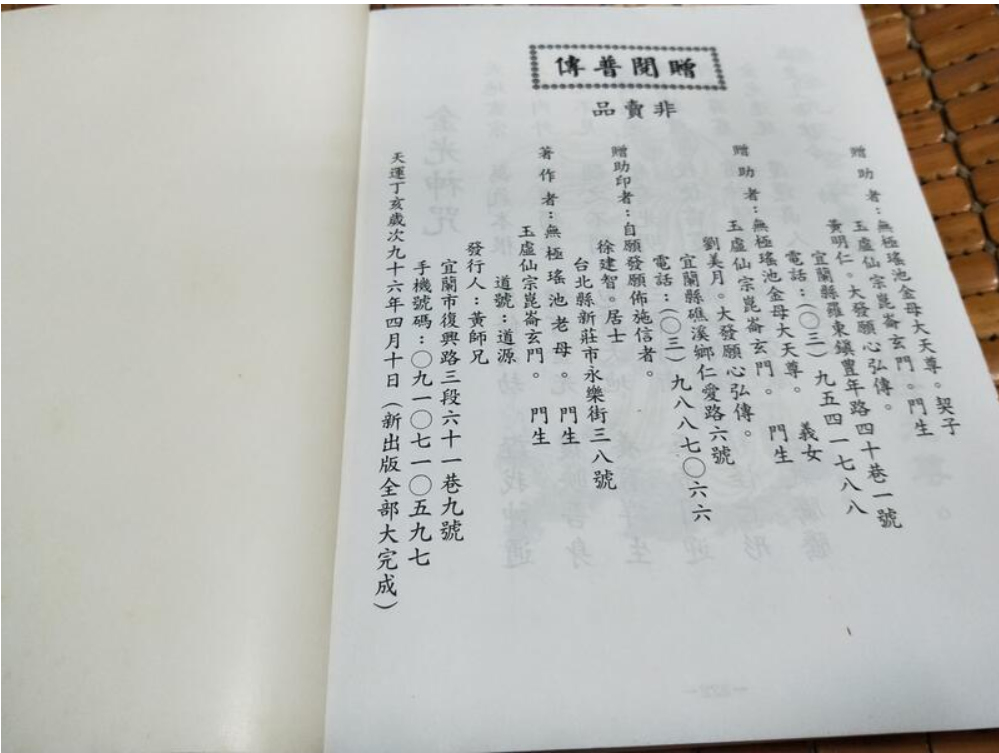 贈閱普傳
非賣品
贈助者：無極瑤池金母大天尊。契子
玉虛仙宗崑崙玄門。門生
黃明仁。大發願心弘傳。
宜蘭縣羅東鎮豐年路四十巷一號
電話：（〇三）九五四一七八八
贈助者：無極瑤池金母大天尊。義女
玉虛仙宗崑崙玄門。門生
劉美月。大發願心弘傳。
宜蘭縣礁溪鄉仁愛路六號
電話：（〇三）九八八七〇六六
贈助印者：自願發願佈施信者。
徐建智。居士
台北縣新莊市永樂街三八號
著作者：無極瑤池老母。門生
玉虛仙宗崑崙玄門。門生
道號：道源
發行人：黃師兄
宜蘭市復興路三段六十一巷九號
手機號碼：〇九一〇七一〇五九七
天運丁亥歲次九十六年四月十日（新出版全部大完成）